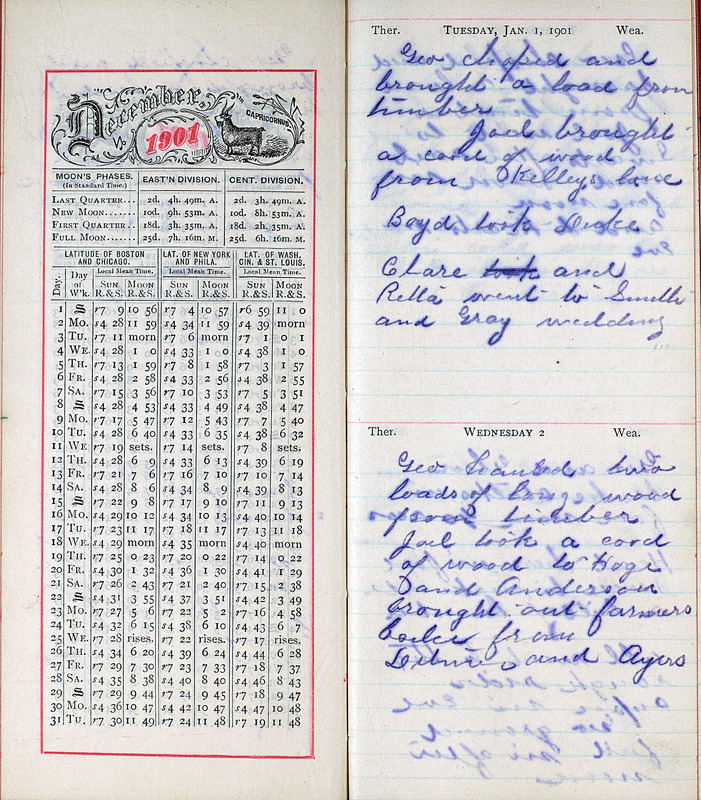 December,
1901
CAPRICORNUS
MOON'S PHASES. (In Standard Time.) EAST'N DIVISION. CENT. DIVISION.
LAST QUARTER... 2d. 4h. 49m. A. 2d. 3h. 49m. A.
NEW MOON...... 10d. 9h. 53m. A. 10d. 8h. 53m. A.
FIRST QUARTER.. 18d. 3h. 35m. A. 18d. 2h. 35m. A.
FULL MOON..... 25d. 7h. 16m. M. 25d. 6h. 16m. M.
LATITUDE OF BOSTON AND CHICAGO. LAT. OF NEW YORK AND PHILA. LAT. OF WASH. CIN. & ST. LOUIS.
Day. Day of W'k. Local Mean Time. Local Mean Time. Local Mean Time.
SUN R.&S. MOON R.&S. SUN R.&S. MOON R.&S. SUN R.&S. MOON R.&S.
1 S r7 9 10 56 r7 4 10 57 r6 59 11 0
2 Mo. s4 28 11 59 s4 34 11 59 s4 39 morn
3 Tu. r7 11 morn r7 6 morn r7 1 0 1
4 We. s4 28 1 0 s4 33 1 0 s4 38 1 0
5 Th. r7 13 1 59 r7 8 1 58 r7 3 1 57
6 Fr. s4 28 2 58 s4 33 2 56 s4 38 2 55
7 Sa. r7 15 3 56 r7 10 3 53 r7 5 3 51
8 S s4 28 4 53 s4 33 4 49 s4 38 4 47
9 Mo. r7 17 5 47 r7 12 5 43 r7 7 5 40
10 Tu. s4 28 6 40 s4 33 6 35 s4 38 6 32
11 We r7 19 sets. r7 14 sets. r7 8 sets.
12 Th. s4 28 6 9 s4 33 6 13 s4 39 6 19
13 Fr. r7 21 7 6 r7 16 7 10 r7 10 7 14
14 Sa. s4 28 8 6 s4 34 8 9 s4 39 8 13
15 S r7 22 9 8 r7 17 9 10 r7 11 9 13
16 Mo. s4 29 10 12 s4 34 10 13 s4 40 10 14
17 Tu. r7 23 11 17 r7 18 11 17 r7 13 11 18
18 We. s4 29 morn s4 35 morn s4 40 morn
19 Th. r7 25 0 23 r7 20 0 22 r7 14 0 22
20 Fr. s4 30 1 32 s4 36 1 30 s4 41 1 29
21 Sa. r7 26 2 43 r7 21 2 40 r7 15 2 38
22 S s4 31 3 55 s4 37 3 51 s4 42 3 49
23 Mo. r7 27 5 6 r7 22 5 2 r7 16 4 58
24 Tu. s4 32 6 15 s4 38 6 10 s4 43 6
25 We. r7 28 rises. r7 22 rises. r7 17 rises.
26 Th. s4 34 6 20 s4 39 6 24 s4 44 6 28
27 Fr. r7 29 7 30 r7 23 7 33 r7 18 7 37
28 Sa. s4 35 8 38 s4 40 8 40 s4 46 8 43
29 S r7 29 9 44 r7 24 9 45 r7 18 9 47
30 Mo. s4 36 10 47 s4 42 10 47 s4 47 10 48
31 Tu. r7 30 11 49 r7 24 11 48 r7 19 11 48
Ther. TUESDAY, JAN. 1, 1901 Wea.
Geo choped and
brought a load from
timber
Joel brought
a cord of wood
from Kelleys lane
Boyd took Duke
Clare took and
Retta went to Smith
and Gray wedding
Ther. WEDNESDAY 2 Wea.
Geo hauled two
loads of long wood
from timber
Joel took a cord
of wood to Hoge
and Anderson
brought out farmers
boiler from
and Ayers